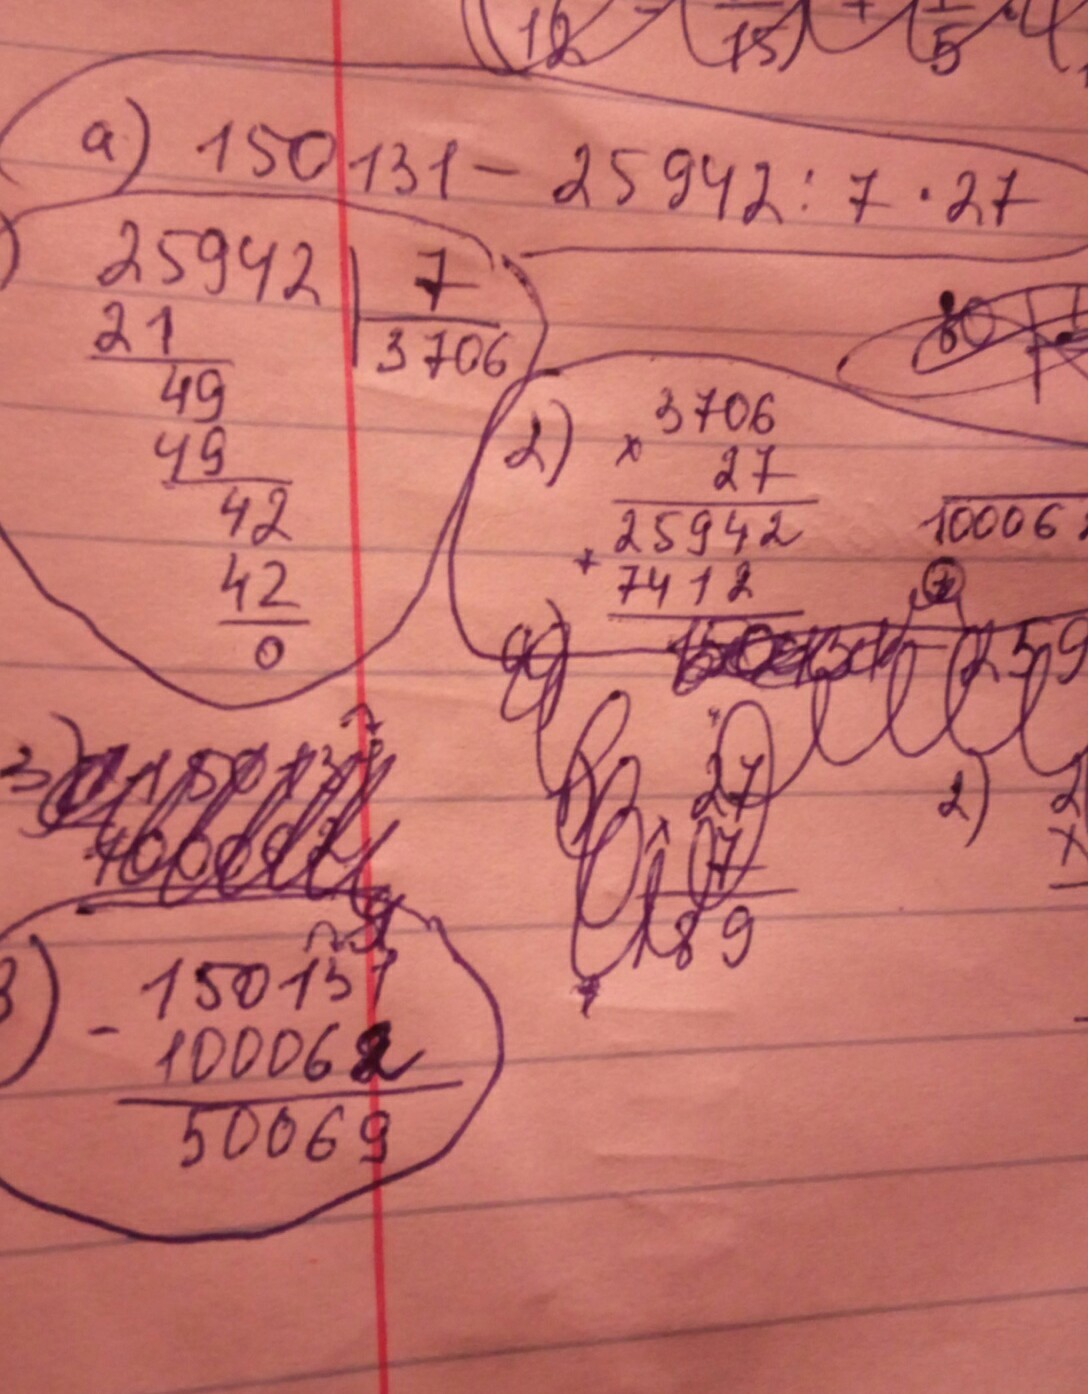 12 - 15) + 5
а) 150131 - 25942 : 7 · 27
25942 | 7
21
3706
49
49
42
42
0
2) 3706
× 27
25942
+ 7412
100062
80
259
27
7
189
2)
×
3)
3) - 150131
100062
50069